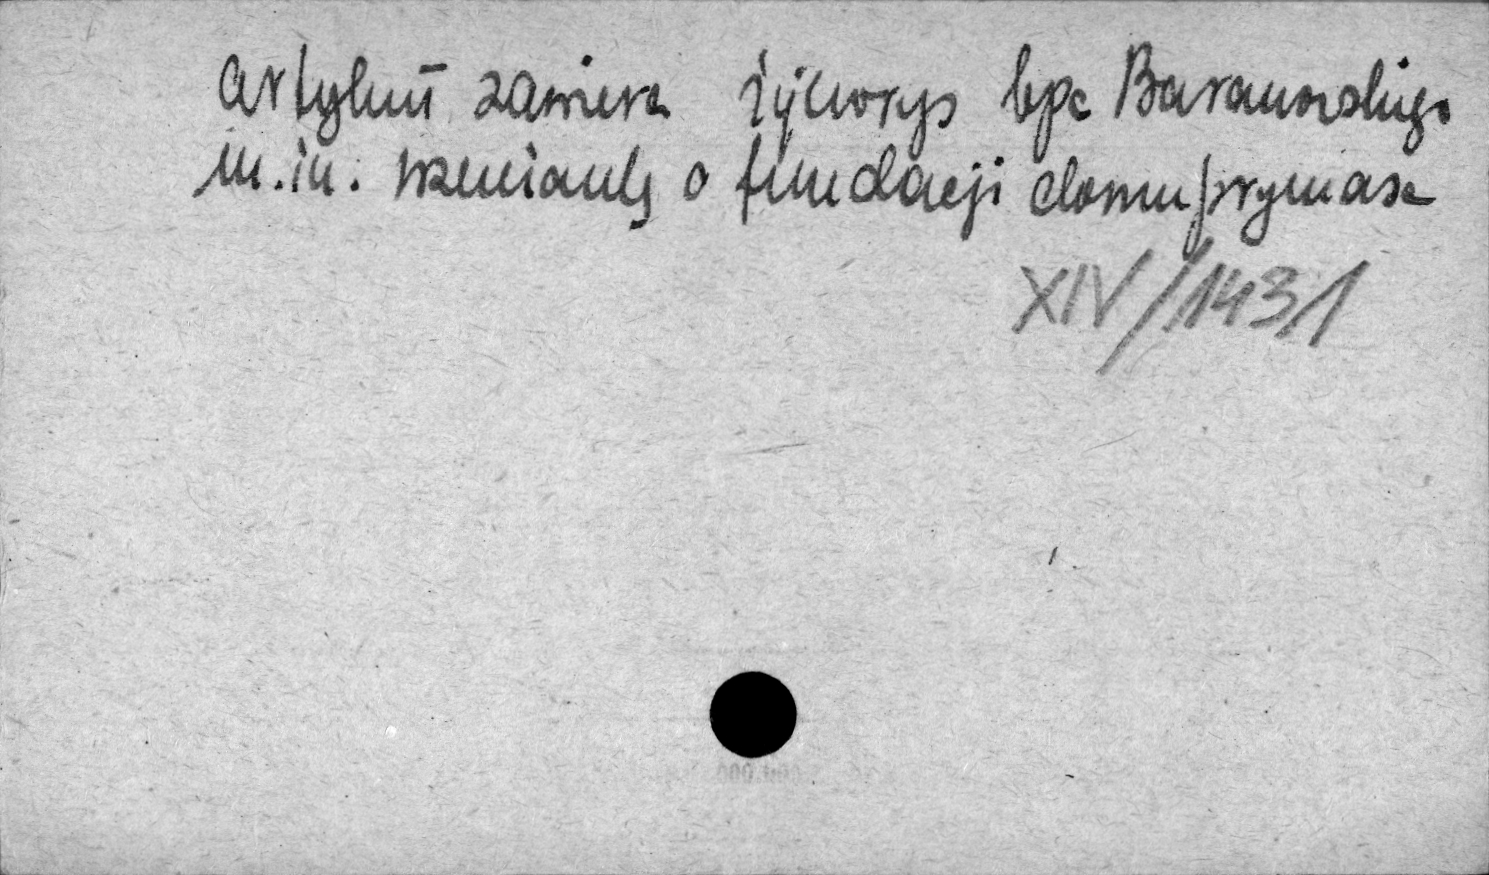 Artykuł zawiera życiorys bpa Baranowskiego
m.in. wzmiankę o fundacji domu prymasa
XIV/1431